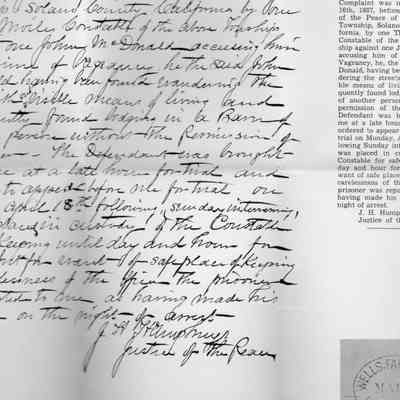 Solano County, California by One
Constable of the above Township
one John McDonald accusing him
crime of Vagrancy, he the said John
having been found wandering the
visible means of living and
found lodging in a Barn of
person without the Permission of
The Defendant was brought
me at a late hour for trial and
to appear before me for trial on
April 18th following, Sunday intervening,
placed in custody of the Constable
keeping until day and hour for
for want of safe place of keeping
carelessness of the officer the prisoner
to me as having made his
on the night of arrest
J. H. Humphreys
Justice of the Peace
Complaint was m
16th, 1887, before
of the Peace of
Township, Solano
fornia, by one Th
Constable of the
ship against one J
accusing him of
Vagrancy, he, the
Donald, having be
dering the streets
ble means of livi
quently found lod
of another person
permission of the
Defendant was b
me at a late hour
ordered to appear
trial on Monday, A
lowing Sunday int
was placed in c
Constable for safe
day and hour for
want of safe place
carelessness of the
prisoner was repo
having made his
night of arrest.
J. H. Hump
Justice of t
WELLS, FA